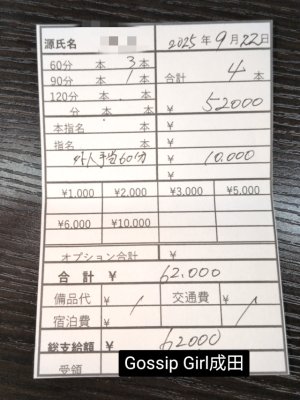 源氏名 2025年9月22日
60分 本 3本
90分 本 1本 合計 4本
120分 本
分 本 ¥ 52000
本指名 本 ¥
指名 本 ¥
外人手当60分 ¥ 10,000
¥1,000 ¥2,000 ¥3,000 ¥5,000
¥6,000 ¥10,000
オプション合計 ¥
合計 ¥ 62,000
備品代 ¥ / 交通費 ¥ /
宿泊費
総支給額 ¥ 62000
受領
Gossip Girl成田